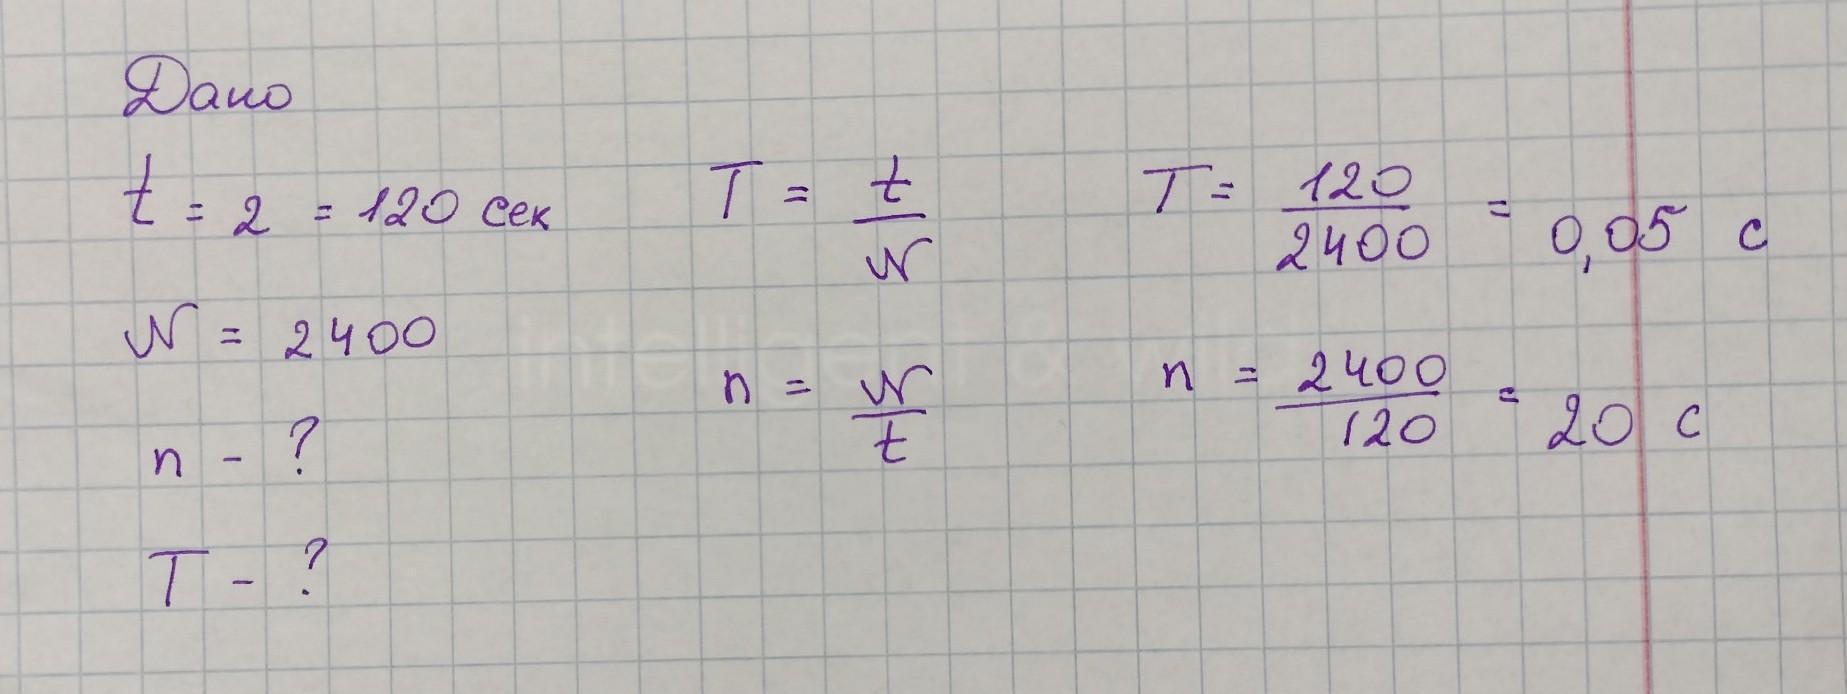 Дано
t = 2 = 120 сек
N = 2400
n - ?
T - ?
T = t/N
n = N/t
T = 120/2400 = 0,05 с
n = 2400/120 = 20 с
intelligent & wild